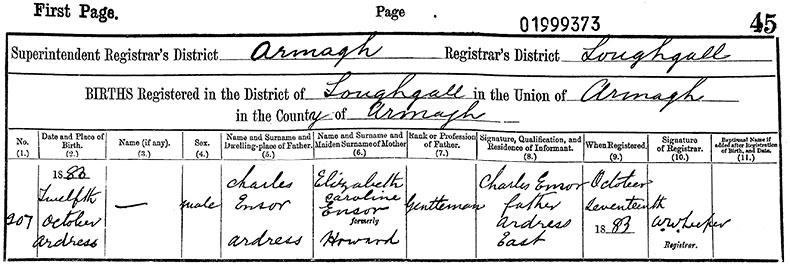 First Page. Page 01999373 45
Superintendent Registrar's District Armagh Registrar's District Loughgall
BIRTHS Registered in the District of Loughgall in the Union of Armagh
in the County of Armagh
No. (1.)
Date and Place of Birth. (2.)
Name (if any). (3.)
Sex. (4.)
Name and Surname and Dwelling-place of Father. (5.)
Name and Surname and Maiden Surname of Mother (6.)
Rank or Profession of Father. (7.)
Signature, Qualification, and Residence of Informant. (8.)
When Registered. (9.)
Signature of Registrar. (10.)
Baptismal Name if added after Registration of Birth, and Date. (11.)
207
1883
Twelfth
October
Ardress
—
male
Charles
Ensor
Ardress
Elizabeth
Caroline
Ensor
formerly
Howard
Gentleman
Charles Ensor
father
Ardress
East
October
Seventeenth
1883
Registrar.